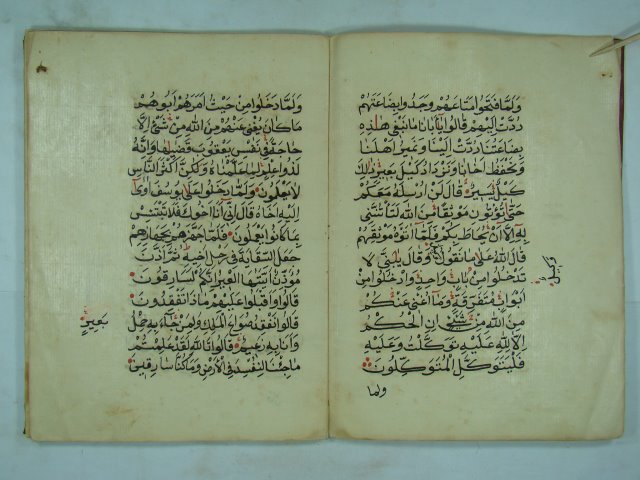 ولما فتحوا متاعهم وجدوا بضاعتهم
ردت اليهم قالوا يا ابانا ما نبغى هذه
بضاعتنا ردت الينا ونمير اهلنا
ونحفظ اخانا ونزداد كيل بعير ذلك
كيل يسير قال لن ارسله معكم
حتى تؤتون موثقا من الله لتأتننى
به الا ان يحاط بكم فلما اتوه موثقهم
قال الله على ما نقول وقال يا بنى لا
وكيل
تدخلوا من باب واحد وادخلوا من
ابواب متفرقة وما اغنى عنكم
من الله من شئ ان الحكم
الا لله عليه توكلت وعليه
فليتوكل المتوكلون
ولما
ولما دخلوا من حيث امرهم ابوهم
ما كان يغنى عنهم من الله من شئ الا
حاجة فى نفس يعقوب قضيها وانه
لذو علم لما علمناه ولكن اكثر الناس
لا يعلمون ولما دخلوا على يوسف اوى
اليه اخاه قال انى انا اخوك فلا تبتئس
بما كانوا يعملون فلما جهزهم بجهازهم
جعل السقاية فى رحل اخيه ثم اذن
مؤذن ايتها العير انكم لسارقون
قالوا واقبلوا عليهم ماذا تفقدون
قالوا نفقد صواع الملك ولمن جاء به حمل
بعير
وانا به زعيم قالوا تالله لقد علمتم
ما جئنا لنفسد فى الارض وما كنا سارقين